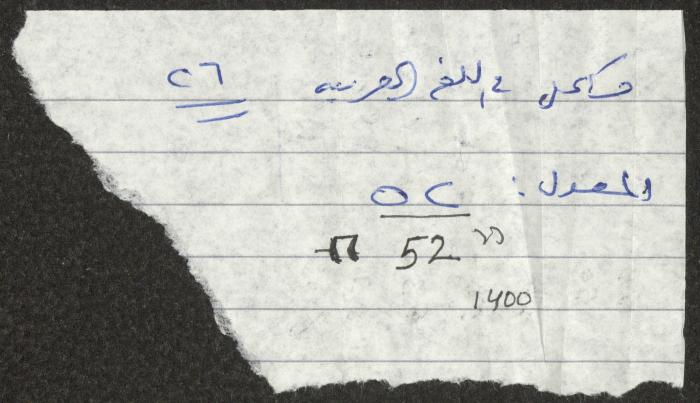 في اللغة العربية ٢٦
المعدل: ٥٢
52
1400